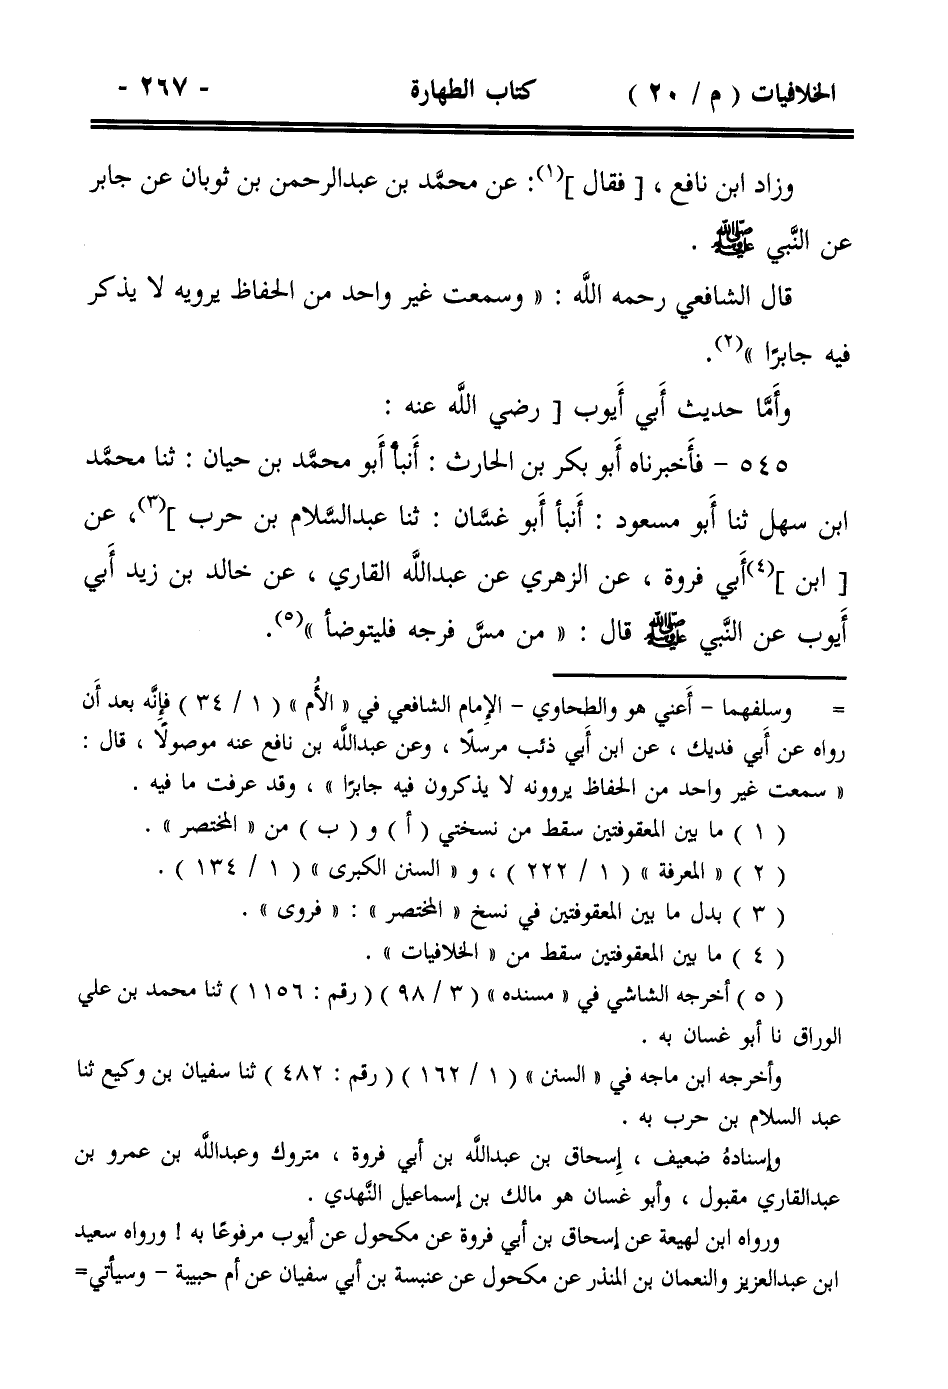 الخلافيات ( م / ٢٠ ) كتاب الطهارة - ٢٦٧ -
وزاد ابن نافع ، [ فقال ](١): عن محمَّد بن عبدالرحمن بن ثوبان عن جابر
عن النَّبي ﷺ .
قال الشافعي رحمه اللَّه : « وسمعت غير واحد من الحفاظ يرويه لا يذكر
فيه جابرًا »(٢).
وأَمَّا حديث أَبي أَيوب [ رضي اللَّه عنه :
٥٤٥ - فأخبرناه أَبو بكر بن الحارث : أَنبأ أَبو محمَّد بن حيان : ثنا محمَّد
ابن سهل ثنا أَبو مسعود : أَنبأ أَبو غسَّان : ثنا عبدالسَّلام بن حرب ](٣)، عن
[ ابن ](٤)أَبي فروة ، عن الزهري عن عبداللَّه القاري ، عن خالد بن زيد أَبي
أَيوب عن النَّبي ﷺ قال : « من مسَّ فرجه فليتوضأ »(٥).
= وسلفهما - أَعني هو والطحاوي - الإمام الشافعي في « الأُم » ( ١ / ٣٤ ) فإنَّه بعد أَن
رواه عن أَبي فديك ، عن ابن أَبي ذئب مرسلًا ، وعن عبداللَّه بن نافع عنه موصولًا ، قال :
« سمعت غير واحد من الحفاظ يروونه لا يذكرون فيه جابرًا » ، وقد عرفت ما فيه .
( ١ ) ما بين المعقوفتين سقط من نسختي ( أ ) و ( ب ) من « المختصر » .
( ٢ ) « المعرفة » ( ١ / ٢٢٢ ) ، و « السنن الكبرى » ( ١ / ١٣٤ ) .
( ٣ ) بدل ما بين المعقوفتين في نسخ « المختصر » : « فروى » .
( ٤ ) ما بين المعقوفتين سقط من « الخلافيات » .
( ٥ ) أخرجه الشاشي في « مسنده » ( ٣ / ٩٨ ) ( رقم : ١١٥٦ ) ثنا محمد بن علي
الوراق نا أبو غسان به .
وأخرجه ابن ماجه في « السنن » ( ١ / ١٦٢ ) ( رقم : ٤٨٢ ) ثنا سفيان بن وكيع ثنا
عبد السلام بن حرب به .
وإسنادهُ ضعيف ، إِسحاق بن عبداللَّه بن أبي فروة ، متروك وعبداللَّه بن عمرو بن
عبدالقاري مقبول ، وأبو غسان هو مالك بن إسماعيل النَّهدي .
ورواه ابن لهيعة عن إسحاق بن أبي فروة عن مكحول عن أيوب مرفوعًا به ! ورواه سعيد
ابن عبدالعزيز والنعمان بن المنذر عن مكحول عن عنبسة بن أبي سفيان عن أم حبيبة - وسيأتي=